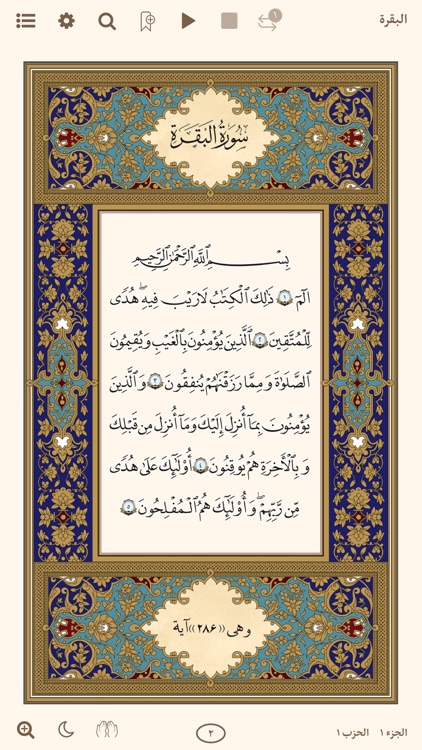 البقرة
١
سُورَةُ البَقَرَةِ
بِسْمِ ٱللَّهِ ٱلرَّحْمَٰنِ ٱلرَّحِيمِ
الٓمٓ ١ ذَٰلِكَ ٱلْكِتَٰبُ لَا رَيْبَ فِيهِ ۛ هُدًى
لِّلْمُتَّقِينَ ٢ ٱلَّذِينَ يُؤْمِنُونَ بِٱلْغَيْبِ وَيُقِيمُونَ
ٱلصَّلَوٰةَ وَمِمَّا رَزَقْنَٰهُمْ يُنفِقُونَ ٣ وَٱلَّذِينَ
يُؤْمِنُونَ بِمَآ أُنزِلَ إِلَيْكَ وَمَآ أُنزِلَ مِن قَبْلِكَ
وَبِٱلْأَخِرَةِ هُمْ يُوقِنُونَ ٤ أُو۟لَٰٓئِكَ عَلَىٰ هُدًى
مِّن رَّبِّهِمْ ۖ وَأُو۟لَٰٓئِكَ هُمُ ٱلْمُفْلِحُونَ ٥
وهى ((٢٨٦)) آية
الجزء ١ الحزب ١
٢